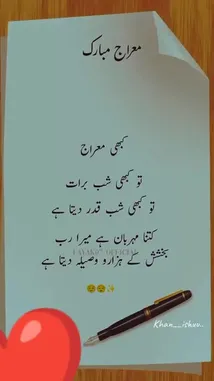 معراج مبارک
کبھی معراج
تو کبھی شب برات
تو کبھی شب قدر دیتا ہے
کتنا مہربان ہے میرا رب
بخشش کے ہزارو وصیلہ دیتا ہے
😌😌✨
Khan__ishuu_